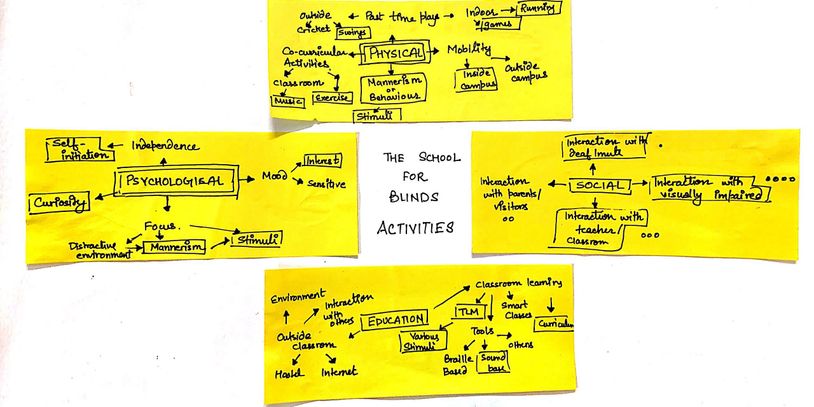 Outside
Past time plays
Indoor
Running
Cricket
Swings
games
Co-curricular
Activities
PHYSICAL
Mobility
Classroom
Music
Exercise
Mannerism
or
Behavious
Stimuli
Inside
campus
Outside
campus
Self-
initiation
Independence
PSYCHOLOGICAL
Mood
Interest
Sensitive
Curiosity
Focus
Distractive
environment
Mannerism
Stimuli
THE SCHOOL
FOR
BLINDS
ACTIVITIES
Interaction with
deaf/mute
Interaction
with parents/
visitors
SOCIAL
Interaction with
visually impaired
Interaction with
teacher/
Classroom
Environment
Interaction
with
others
EDUCATION
Outside
classroom
Hostel
Internet
Classroom learning
TLM
Smart
Classes
Curriculum
Various
Stimuli
Tools
Others
Braille
Based
Sound
base